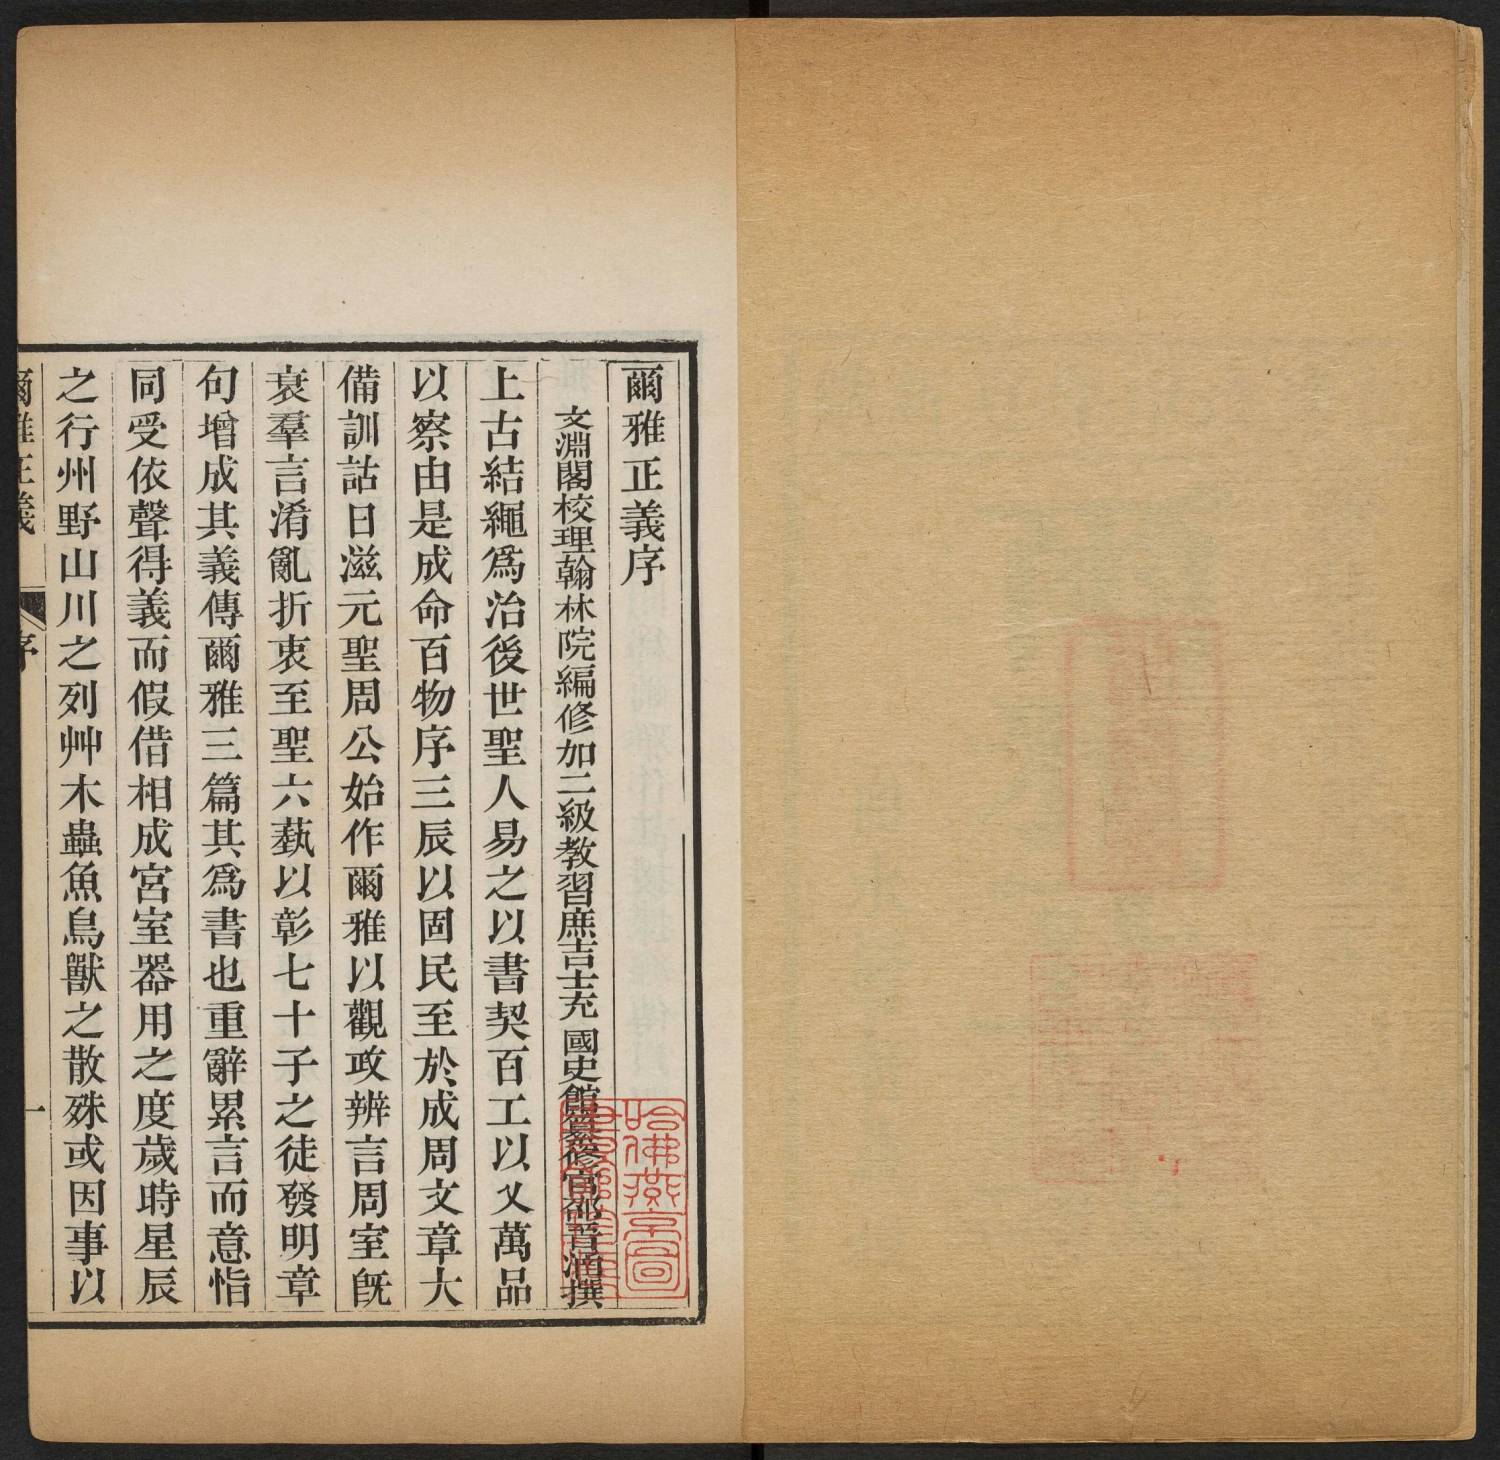 爾雅正義序
文淵閣校理翰林院編修加二級教習庶吉士充 國史館纂修官邵晉涵撰
上古結繩爲治後世聖人易之以書契百工以乂萬品
以察由是成命百物序三辰以固民至於成周文章大
備訓詁日滋元聖周公始作爾雅以觀政辨言周室旣
衰羣言淆亂折衷至聖六藝以彰七十子之徒發明章
句增成其義傳爾雅三篇其爲書也重辭累言而意恉
同受依聲得義而假借相成宮室器用之度歲時星辰
之行州野山川之列艸木蟲魚鳥獸之散殊或因事以
爾雅正義
序
一
哈佛燕京圖
書館珍藏